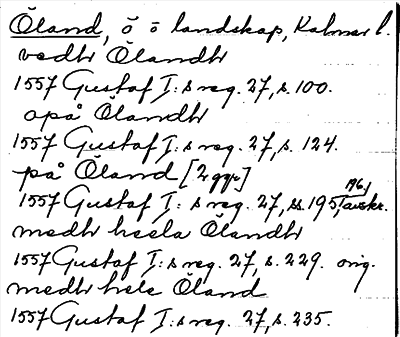 Öland, ö ö landskap, Kalmar l.
vedhr Ölandh
1557 Gustaf I:s reg. 27, s. 100.
opå Ölandh
1557 Gustaf I:s reg. 27, s. 124.
på Öland [2 ggr]
1557 Gustaf I:s reg. 27, ss. 195, 196, avskr.
medhr heela Ölandh
1557 Gustaf I:s reg. 27, s. 229. orig.
medhr hele Öland
1557 Gustaf I:s reg. 27, s. 235.